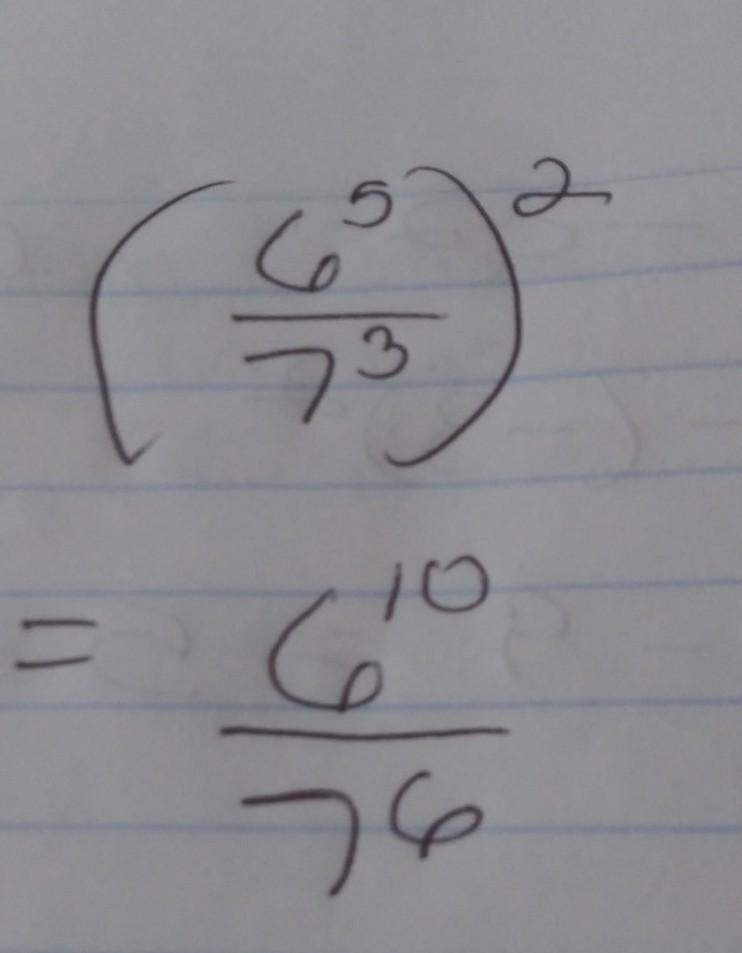 (6⁵/7³)²
= 6¹⁰/7⁶